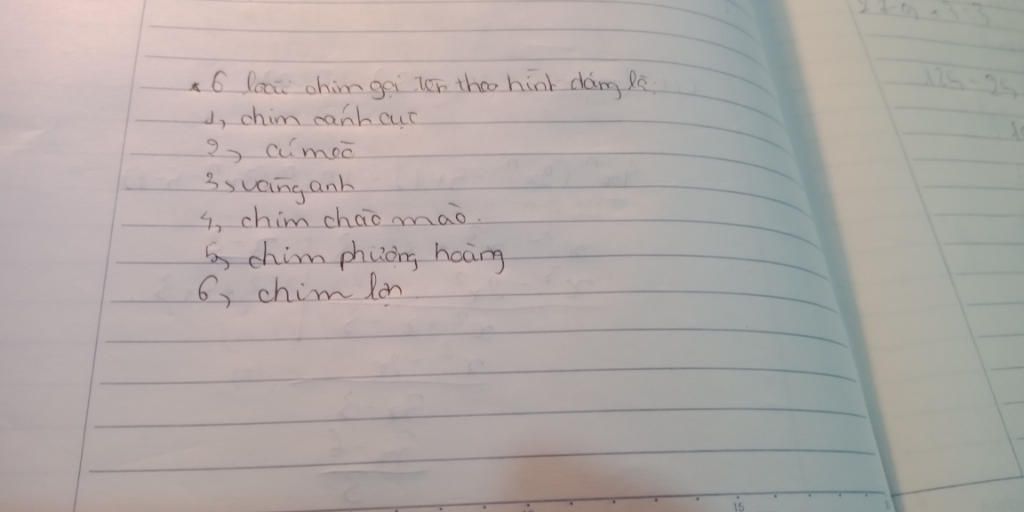 * 6 loài chim gọi tên theo hình dáng là.
1, chim cánh cụt
2, cú mèo
3, vàng anh
4, chim chào mào.
5, chim phượng hoàng
6, chim lợn
15